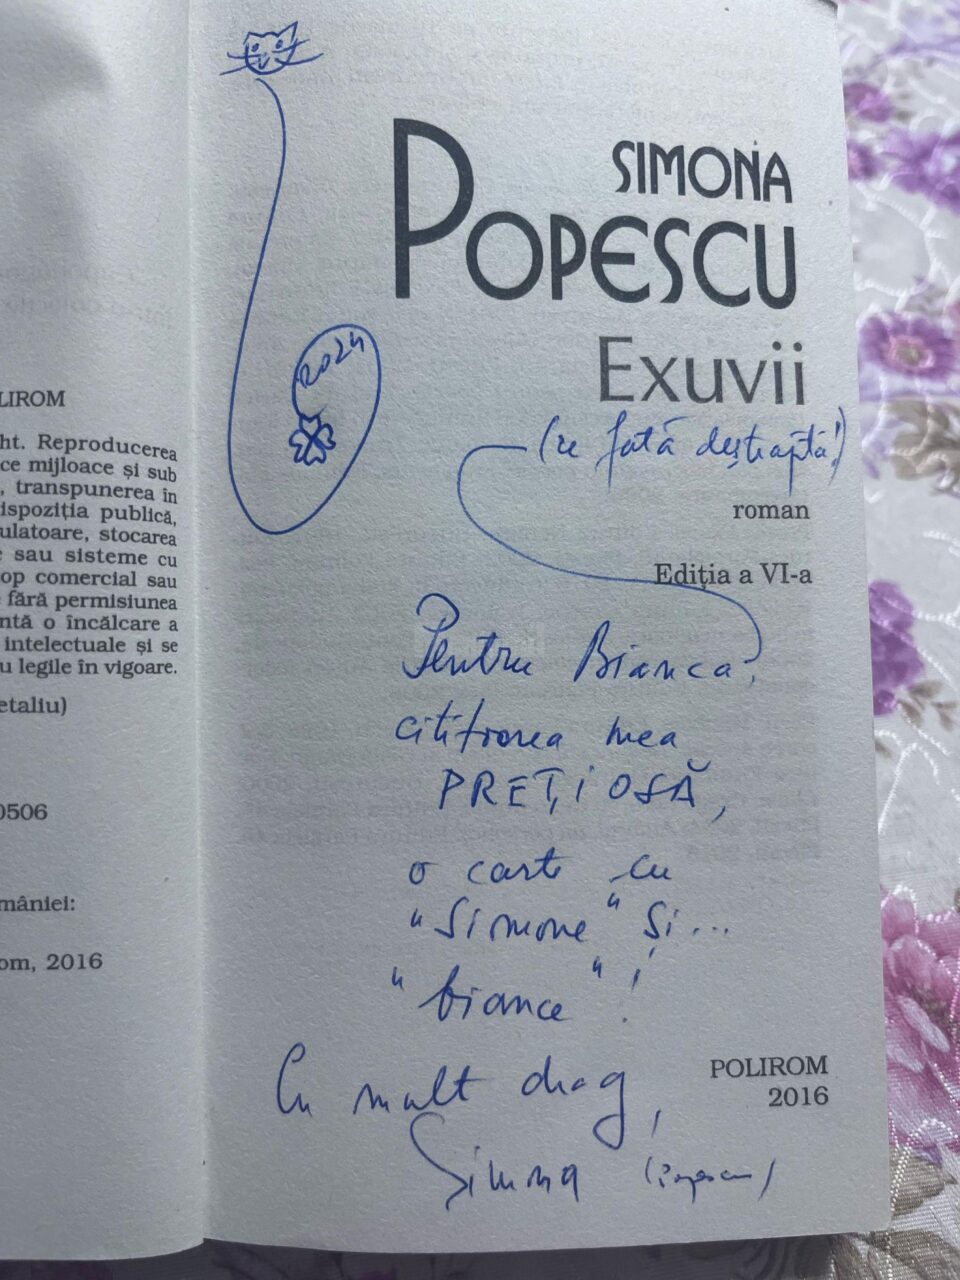 LIROM
ht. Reproducerea
ce mijloace și sub
, transpunerea în
ispoziția publică,
ulatoare, stocarea
e sau sisteme cu
op comercial sau
fără permisiunea
ntă o încălcare a
intelectuale și se
u legile în vigoare.
etaliu)
0506
mâniei:
om, 2016
SIMONA
POPESCU
Exuvii
2024
(ce fată deșteaptă!)
roman
Ediția a VI-a
Pentru Bianca,
cititoarea mea
PREȚIOSĂ,
o carte cu
"Simone" și...
"biance"!
Cu mult drag,
Simona (Popescu)
POLIROM
2016